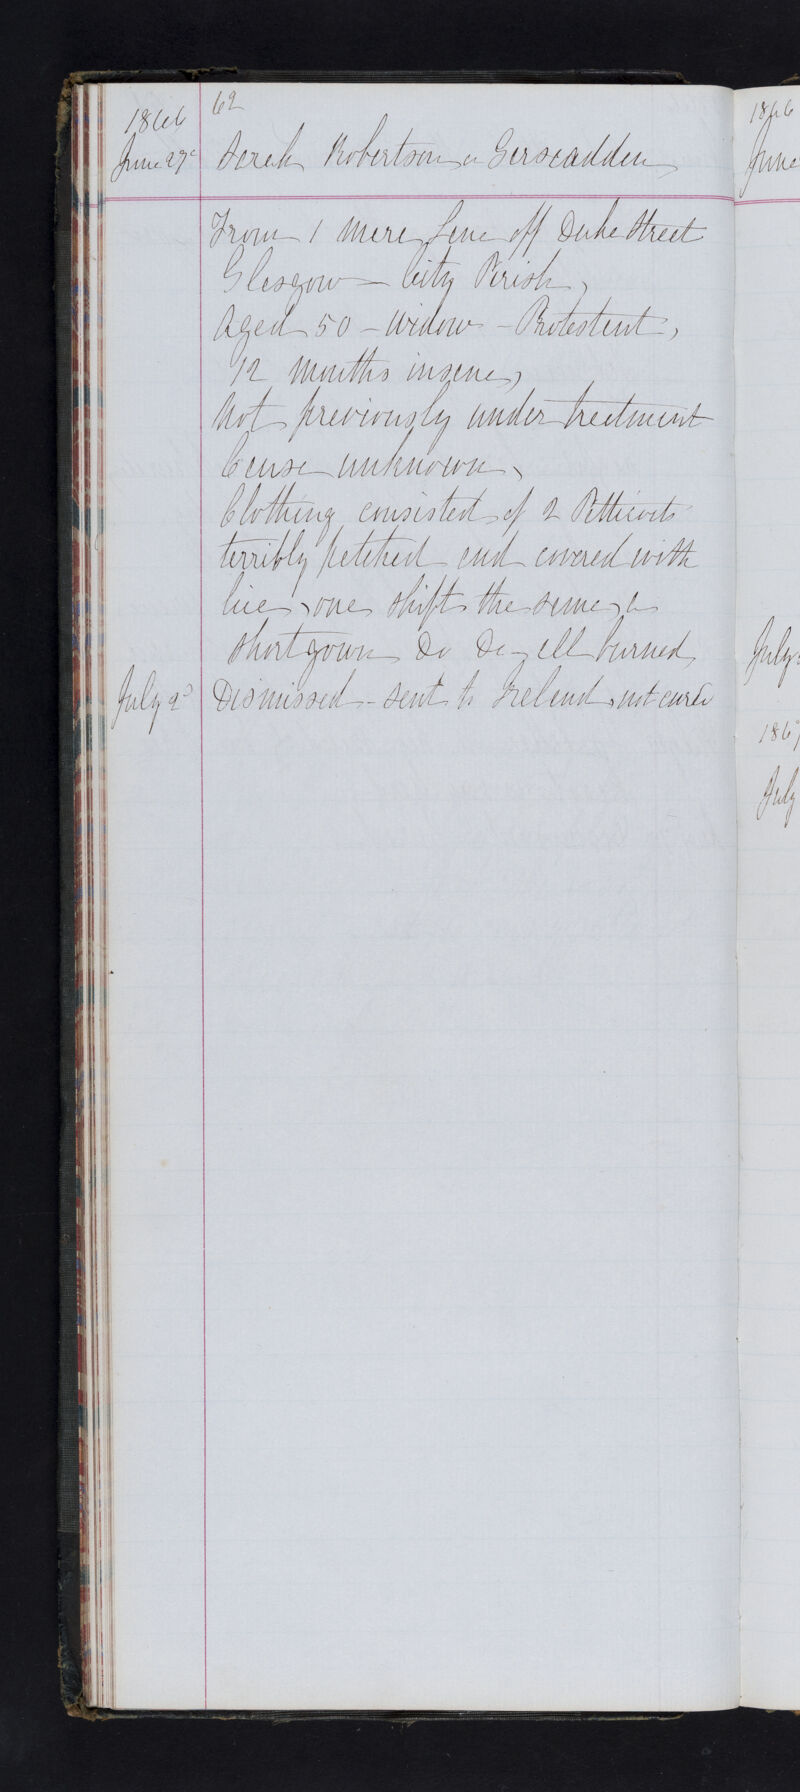 62
1866
June 27th Sarah Robertson or Garscadden
From 1 Mure Lane off Duke Street
Glasgow - City Parish,
Aged 50 - Widow - Protestant,
12 months insane,
Not previously under treatment
Cause unknown,
Clothing consisted of 2 Petticoats
terribly patched and covered with
lice, one shift the same, a
shortgown Do Do - all burned
July 2d Dismissed - sent to Ireland, not cured
1866
June
July
186
July